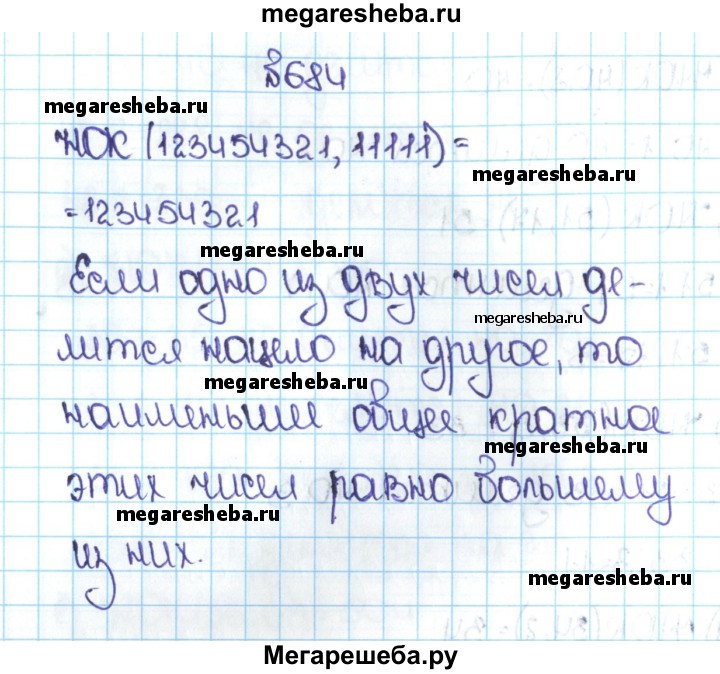 megaresheba.ru
№684
megaresheba.ru
НОК (123454321, 11111) =
megaresheba.ru
= 123454321
megaresheba.ru
Если одно из двух чисел де-
megaresheba.ru
лится нацело на другое, то
megaresheba.ru
наименьшее общее кратное
megaresheba.ru
этих чисел равно большему
megaresheba.ru
из них.
megaresheba.ru
Мегарешеба.ру